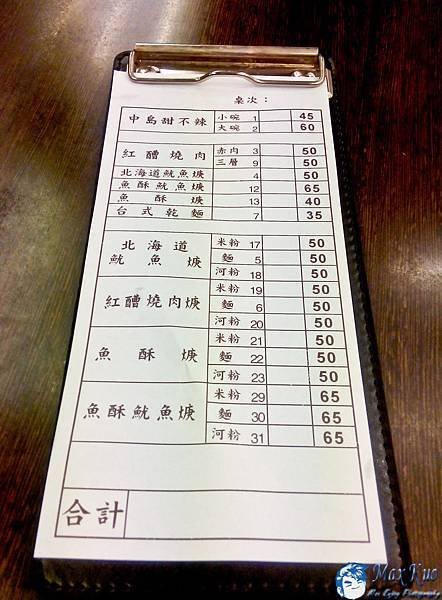 桌次：
中島甜不辣 小碗 1 45
大碗 2 60
紅醩燒肉 赤肉 3 50
三層 9 50
北海道魷魚焿 4 50
魚酥魷魚焿 12 65
魚酥焿 13 40
台式乾麵 7 35
北海道魷魚焿 米粉 17 50
麵 5 50
河粉 18 50
紅醩燒肉焿 米粉 19 50
麵 6 50
河粉 20 50
魚酥焿 米粉 21 50
麵 22 50
河粉 23 50
魚酥魷魚焿 米粉 29 65
麵 30 65
河粉 31 65
合計
Max Kuo